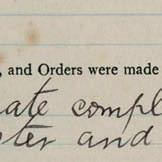 , and Orders were made
ate compl
ster and